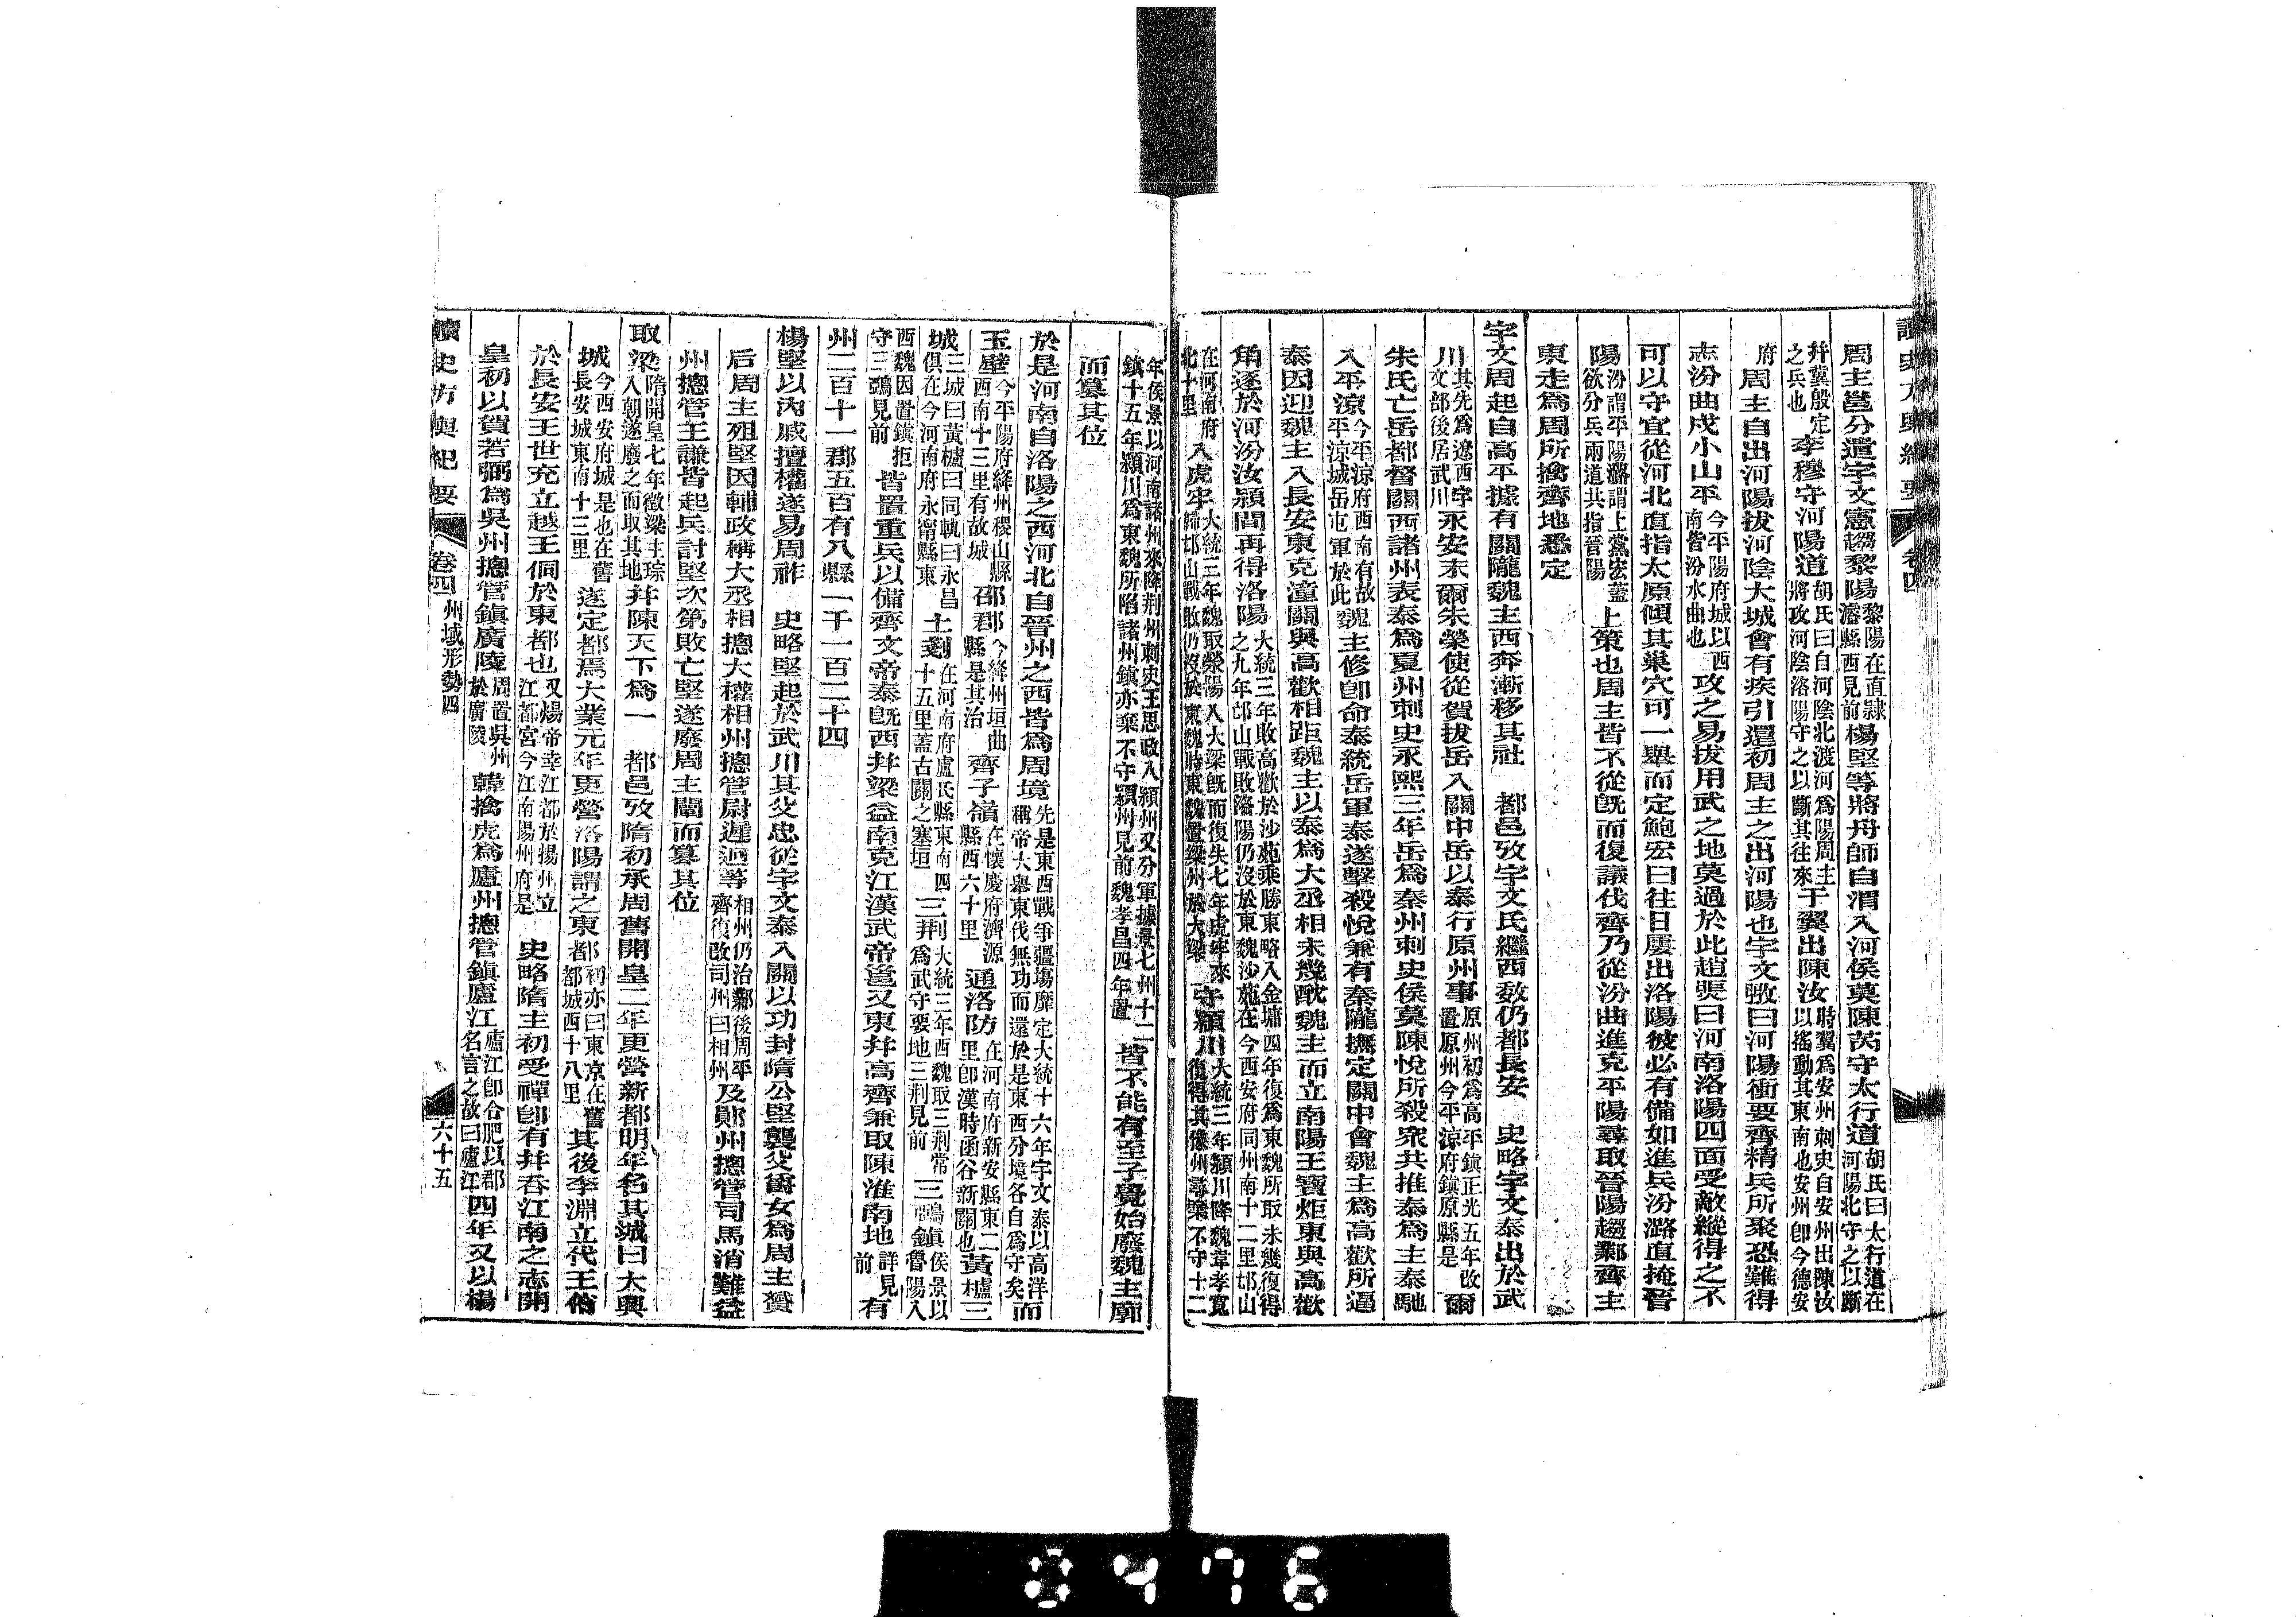 讀史方輿紀要 卷四
周主邕分遣宇文憲趨黎陽黎陽在直隸濬縣西見前楊堅等將舟師自渭入河侯莫陳芮守太行道胡氏曰太行道在河陽北守之以斷
并冀殷定之兵也李穆守河陽道胡氏曰自河陰北渡河為陽周主將攻河陰洛陽守之以斷其往來于翼出陳汝時翼為安州刺史自安州出陳汝以搖動其東南也安州卽今德安
府周主自出河陽拔河陰大城會有疾引還初周主之出河陽也宇文㢸曰河陽衝要齊精兵所聚恐難得
志汾曲戍小山平今平陽府城以西南皆汾水曲也攻之易拔用武之地莫過於此趙煚曰河南洛陽四面受敵縱得之不
可以守宜從河北直指太原傾其巢穴可一舉而定鮑宏曰往日屢出洛陽彼必有備如進兵汾潞直掩晉
陽汾謂平陽潞謂上黨宏蓋欲分兵兩道共指晉陽上策也周主皆不從旣而復議伐齊乃從汾曲進克平陽尋取晉陽趨鄴齊主
東走為周所擒齊地悉定
宇文周起自高平據有關隴魏主西奔漸移其社 都邑攷宇文氏繼西数仍都長安 史略宇文泰出於武
川其先為遼西宇文部後居武川永安末爾朱榮使從賀拔岳入關中岳以泰行原州事原州初為高平鎮正光五年改置原州今平涼府鎮原縣是爾
朱氏亡岳都督關西諸州表泰為夏州刺史永熙三年岳為秦州刺史侯莫陳悅所殺衆共推泰為主泰馳
入平涼今平涼府西南有故平涼城岳屯軍於此魏主修卽命泰統岳軍泰遂擊殺悅兼有秦隴撫定關中會魏主為高歡所逼
泰因迎魏主入長安東克潼關與高歡相距魏主以泰為大丞相未幾酖魏主而立南陽王寶炬東與高歡
角逐於河汾汝潁間再得洛陽大統三年敗高歡於沙苑乘勝東略入金墉四年復為東魏所取未幾復得之九年邙山戰敗洛陽仍沒於東魏沙苑在今西安府同州南十二里邙山
在河南府北十里入虎牢大統三年魏取滎陽入大梁旣而復失七年虎牢來歸邙山戰敗仍沒於東魏時東魏置梁州於大梁守潁川大統三年潁川降魏韋孝寬復得其豫州尋棄不守十二
年侯景以河南諸州來降荆州刺史王思政入潁州又分軍據景七州十二鎮十五年潁川為東魏所陷諸州鎮亦棄不守潁州見前魏孝昌四年置皆不能有至子覺始廢魏主廓
而篡其位
於是河南自洛陽之西河北自晉州之西皆為周境先是東西戰爭疆塲靡定大統十六年宇文泰以高洋稱帝大舉東伐無功而還於是東西分境各自為守矣而
玉壁今平陽府絳州稷山縣西南十三里有故城邵郡今絳州垣曲縣是其治齊子嶺在懷慶府濟源縣西六十里通洛防在河南府新安縣東二里卽漢時函谷新關也黃櫨三
城三城曰黃櫨曰同軌曰永昌城俱在今河南府永甯縣東土剗在河南府盧氏縣東南四十五里蓋古關之塞垣三荆大統三年西魏取三荆常為武守要地三荆見前三鵶鎮侯景以魯陽入
西魏因置鎮拒守三鵶見前皆置重兵以備齊文帝泰旣西并梁益南克江漢武帝邕又東并高齊兼取陳淮南地詳見前有
州二百十一郡五百有八縣一千一百二十四
楊堅以內戚擅權遂易周祚 史略堅起於武川其父忠從宇文泰入關以功封隋公堅襲父爵女為周主贇
后周主殂堅因輔政稱大丞相摠大權相州摠管尉遲迥等相州仍治鄴後周平齊復改司州曰相州及鄖州摠管司馬消難益
州摠管王謙皆起兵討堅次第敗亡堅遂廢周主闡而篡其位
取梁隋開皇七年徵梁主琮入朝遂廢之而取其地并陳天下為一 都邑攷隋初承周舊開皇二年更營新都明年名其城曰大興
城今西安府城是也在舊長安城東南十三里遂定都焉大業元年更營洛陽謂之東都初亦曰東京在舊都城西十八里其後李淵立代王侑
於長安王世充立越王侗於東都也又煬帝幸江都於揚州立江都宮今江南揚州府是 史略隋主初受禪卽有幷吞江南之志開
皇初以賀若弼為吳州摠管鎮廣陵周置吳州於廣陵韓擒虎為廬州摠管鎮廬江廬江卽合肥以郡名言之故曰廬江四年又以楊
讀史方輿紀要 卷四 州域形勢四 六十五
0476